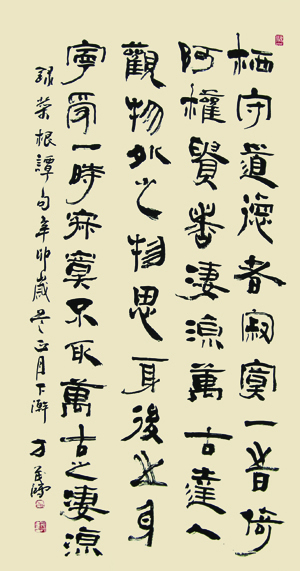 栖守道德者寂寞一旹倚
阿權貴者淒涼萬古達人
觀物外之物思身後之身
寧受一時寂寞不取萬古之淒涼
錄菜根譚句辛卯歲正月下澣 方